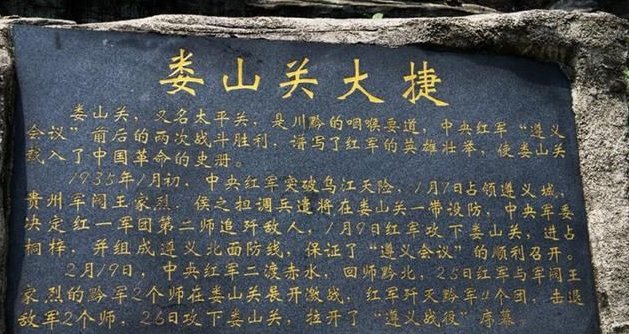 娄山关大捷
娄山关，又名太平关，是川黔的咽喉要道，中央红军“遵义
会议”前后的两次战斗胜利，谱写了红军的英雄壮举，使娄山关
载入了中国革命的史册。
1935年1月初，中央红军突破乌江天险，1月7日占领遵义城，
贵州军阀王家烈、侯之担调兵遣将在娄山关一带设防，中央军委
决定红一军团第二师追歼敌人，1月9日红军攻下娄山关，进占
桐梓，并组成遵义北面防线，保证了“遵义会议”的顺利召开。
2月19日，中央红军二渡赤水，回师黔北，25日红军与军阀王
家烈的黔军2个师在娄山关展开激战，红军歼灭黔军个团，击退
敌军2个师，26日攻下娄山关，拉开了“遵义战役”序幕。